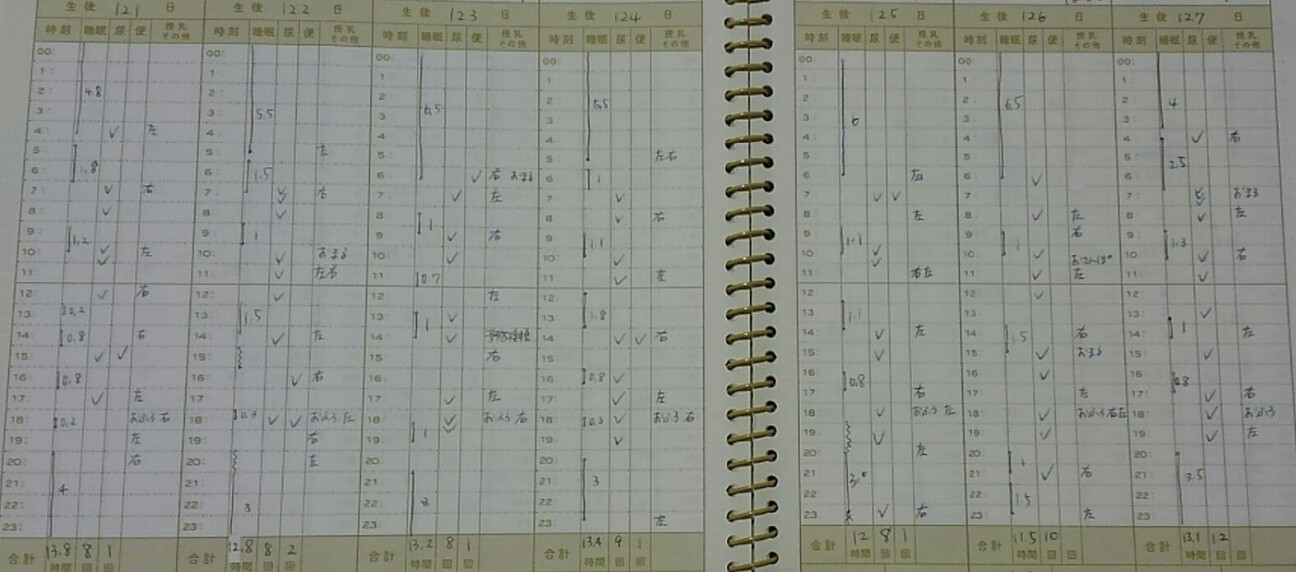 生後 121 日
時刻 睡眠 尿 便 授乳その他
00:
1:
2: 4.8
3:
4: ✓ 左
5:
6: 1.8
7: ✓ 右
8: ✓
9: 1.2
10: ✓ ✓ 左
11:
12: ✓ 右
13: 0.2
14: 0.8 右
15: ✓ ✓
16: 0.8
17: ✓ 左
18: 0.2 おふろ 右
19: 左
20: 右
21: 4
22:
23:
合計 13.8時間 8回 1回
生後 122 日
時刻 睡眠 尿 便 授乳その他
00:
1:
2:
3: 5.5
4:
5: 左
6: 1.5
7: ✓ ✓ 右
8: ✓
9: 1
10: ✓ おまる
11: ✓ 左右
12: ✓
13: 1.5
14: ✓ 左
15:
16: ✓ 右
17:
18: 0.3 ✓ ✓ おふろ 左
19: 右
20: 左
21:
22: 3
23:
合計 12.8時間 8回 2回
生後 123 日
時刻 睡眠 尿 便 授乳その他
00:
1:
2: 6.5
3:
4:
5:
6: ✓ 右 おまる
7: ✓ 左
8: 1
9: ✓ 右
10: ✓
11: 0.7
12: 左
13: 1 ✓
14: ✓
15: 右
16:
17: ✓ 左
18: ✓ ✓ おふろ 右
19: 1
20:
21:
22: 3
23:
合計 13.2時間 8回 1回
生後 124 日
時刻 睡眠 尿 便 授乳その他
00:
1:
2: 5.5
3:
4:
5: 左右
6: 1
7: ✓
8: ✓ 右
9: 1.1
10: ✓
11: ✓ 左
12:
13: 1.8
14: ✓ ✓ 右
15:
16: 0.8 ✓
17: ✓ 左
18: 0.2 ✓ おふろ 右
19: ✓
20:
21: 3
22:
23: 左
合計 13.4時間 9回 1回
生後 125 日
時刻 睡眠 尿 便 授乳その他
00:
1:
2:
3: 6
4:
5:
6:
7: ✓ ✓
8: 左
9: 1.1
10: ✓ ✓
11: 右左
12:
13: 1.1
14: ✓ 左
15: ✓
16: 0.8
17: 右
18: ✓ おふろ 左
19: ✓
20: 左
21:
22:
23: ✓ 右
合計 12時間 9回 1回
生後 126 日
時刻 睡眠 尿 便 授乳その他
00:
1:
2: 6.5
3:
4:
5:
6: ✓
7:
8: ✓ 左
9: 右
10: ✓
11: ✓ 左
12: ✓
13:
14: 1.5 右
15: ✓ おまる
16: ✓
17: 左
18: ✓ おふろ 右左
19: ✓
20: 1
21: ✓ 右
22: 1.5
23: 左
合計 11.5時間 10回 回
生後 127 日
時刻 睡眠 尿 便 授乳その他
00:
1:
2: 4
3:
4: ✓ 右
5: 2.5
6:
7: ✓ ✓ おまる
8: ✓ 左
9: 1.3
10: ✓ 右
11: ✓
12:
13: ✓
14: 1 左
15: ✓
16: 0.8
17: ✓ 右
18: ✓ おふろ
19: ✓ 左
20:
21: 3.5
22:
23:
合計 13.1時間 12回 回